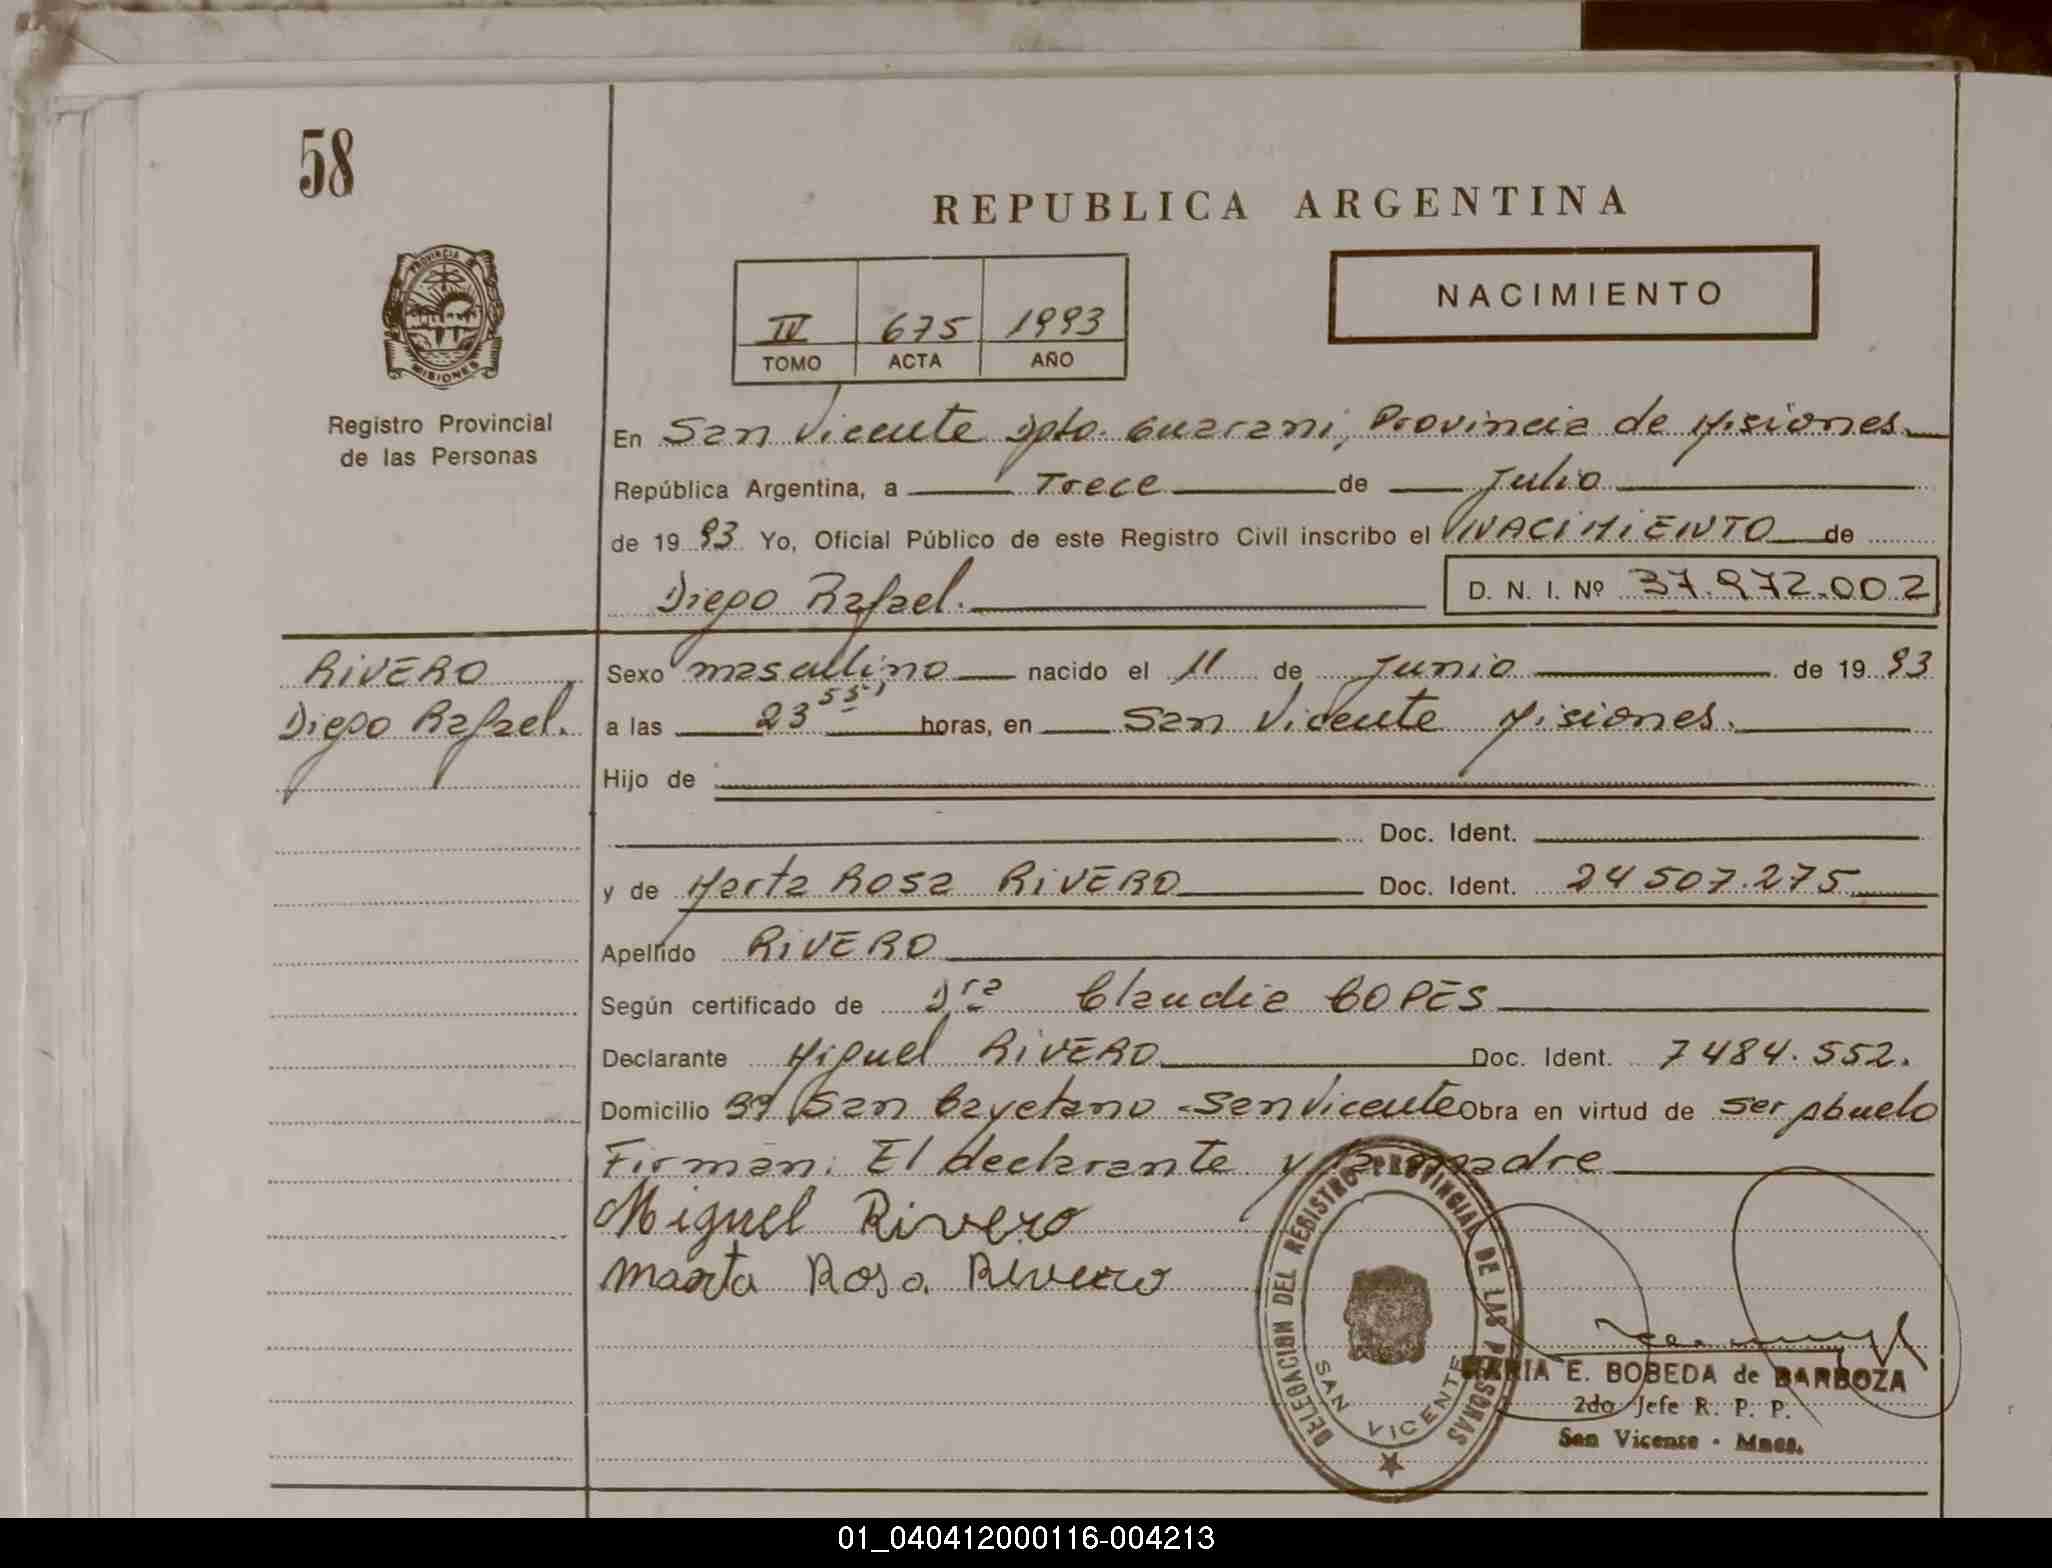 58
REPUBLICA ARGENTINA
NACIMIENTO
IV 675 1993
TOMO ACTA AÑO
PROVINCIA DE
MISIONES
Registro Provincial
de las Personas
En San Vicente Dpto. Guarani, Provincia de Misiones
República Argentina, a Trece de Julio
de 1993 Yo, Oficial Público de este Registro Civil inscribo el NACIMIENTO de
Diego Rafael. D. N. I. Nº 37.972.002
RIVERO
Diego Rafael.
Sexo masculino nacido el 11 de Junio de 1993
a las 23 55' horas, en San Vicente Misiones.
Hijo de
Doc. Ident.
y de Marta Rosa RIVERO Doc. Ident. 24507.275
Apellido RIVERO
Según certificado de Dra Claudia COPES
Declarante Miguel RIVERO Doc. Ident. 7484.552.
Domicilio Bº San Cayetano - San Vicente Obra en virtud de ser Abuelo
Firman: El declarante y la madre
Miguel Rivero
Marta Rosa Rivero
DELEGACION DEL REGISTRO PROVINCIAL DE LAS PERSONAS
SAN VICENTE
MARIA E. BOBEDA de BARBOZA
2do Jefe R. P. P.
San Vicente - Mnes.
01_040412000116-004213